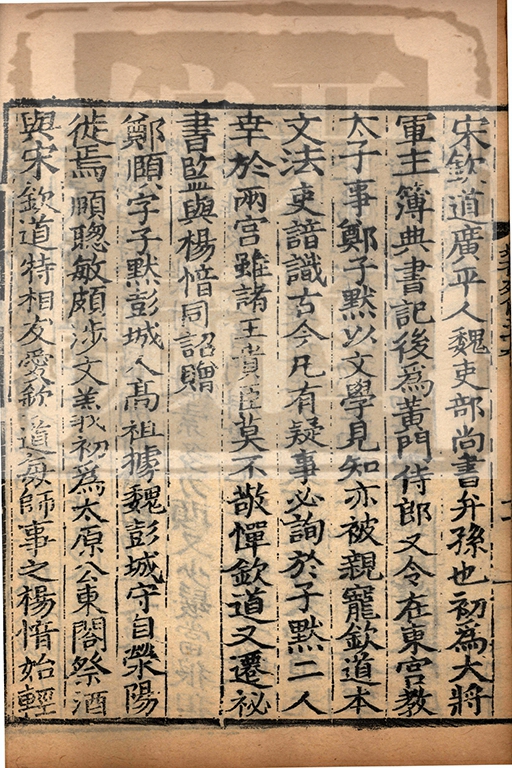 宋欽道廣平人魏吏部尚書弁孫也初為大將
軍主簿典書記後為黃門侍郎又令在東宮教
太子事鄭子默以文學見知亦被親寵欽道本
文法吏諳識古今凡有疑事必詢於子默二人
幸於兩宮雖諸王貴臣莫不敬憚欽道又遷祕
書監與楊愔同詔贈
鄭頤字子默彭城人髙祖據魏彭城守自滎陽
徙焉頤聰敏頗涉文義初為太原公東閤祭酒
與宋欽道特相友愛欽道每師事之楊愔始輕